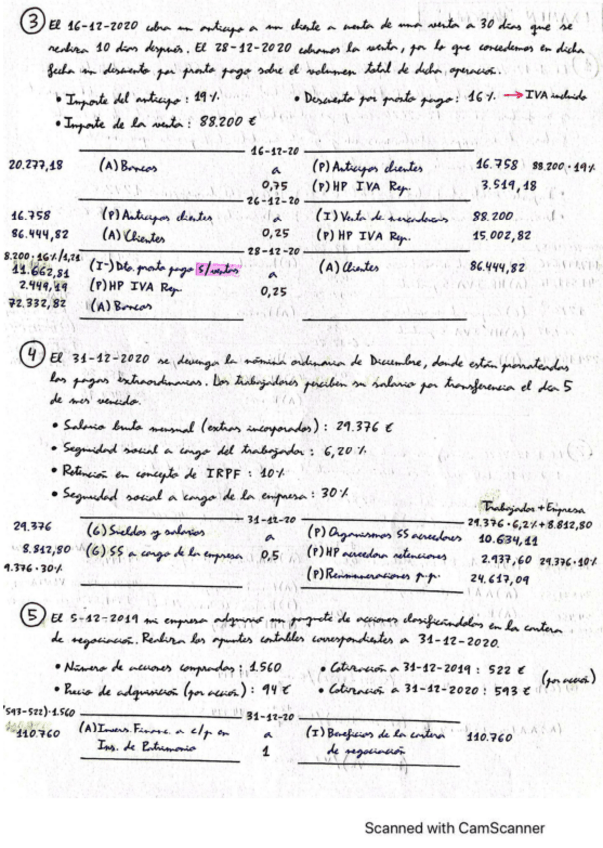 ③ El 16-12-2020 cobra un anticipo a un cliente a cuenta de una venta a 30 días que se
realiza 10 días después. El 28-12-2020 cobramos la venta, por lo que concedemos en dicha
fecha un descuento por pronto pago sobre el volumen total de dicha operación.
• Importe del anticipo: 19% • Descuento por pronto pago: 16% → IVA incluido
• Importe de la venta: 88.200 €
16-12-20
20.277,18 (A) Bancos a (P) Anticipos clientes 16.758 88.200·19%
0,75 (P) HP IVA Rep. 3.519,18
26-12-20
16.758 (P) Anticipos clientes a (I) Venta de mercaderías 88.200
86.444,82 (A) Clientes 0,25 (P) HP IVA Rep. 15.002,82
28-12-20
8.200·16%/1,21
11.662,81 (I-) Dto. pronto pago s/ventas a (A) Clientes 86.444,82
2.449,19 (P) HP IVA Rep. 0,25
72.332,82 (A) Bancos
④ El 31-12-2020 se devenga la nómina ordinaria de Diciembre, donde están prorrateadas
las pagas extraordinarias. Los trabajadores perciben su salario por transferencia el día 5
de mes vencido.
• Salario bruto mensual (extras incorporados): 29.376 €
• Seguridad social a cargo del trabajador: 6,20%
• Retención en concepto de IRPF: 10%
• Seguridad social a cargo de la empresa: 30%
Trabajador + Empresa
31-12-20 29.376·6,2%+8.812,80
29.376 (G) Sueldos y salarios a (P) Organismos SS acreedores 10.634,11
8.812,80 (G) SS a cargo de la empresa 0,5 (P) HP acreedora retenciones 2.937,60 29.376·10%
9.376·30% (P) Remuneraciones p.p. 24.617,09
⑤ El 5-12-2019 mi empresa adquirió un paquete de acciones clasificándolos en la cartera
de negociación. Realiza los apuntes contables correspondientes a 31-12-2020.
• Número de acciones compradas: 1.560 • Cotización a 31-12-2019: 522 €
(por acción)
• Precio de adquisición (por acción): 94 € • Cotización a 31-12-2020: 593 €
(593-522)·1.560 31-12-20
110.760 (A) Invers. Financ. a c/p en a (I) Beneficios de la cartera 110.760
Ins. de Patrimonio 1 de negociación
Scanned with CamScanner